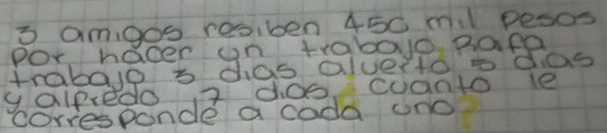 3 amigos resiben 450 mil pesos
por hacer un trabajo, Rafa
trabajo 3 dias alverto 5 dias
y alfredo 7 dias ¿cuanto le
corresponde a cada uno?